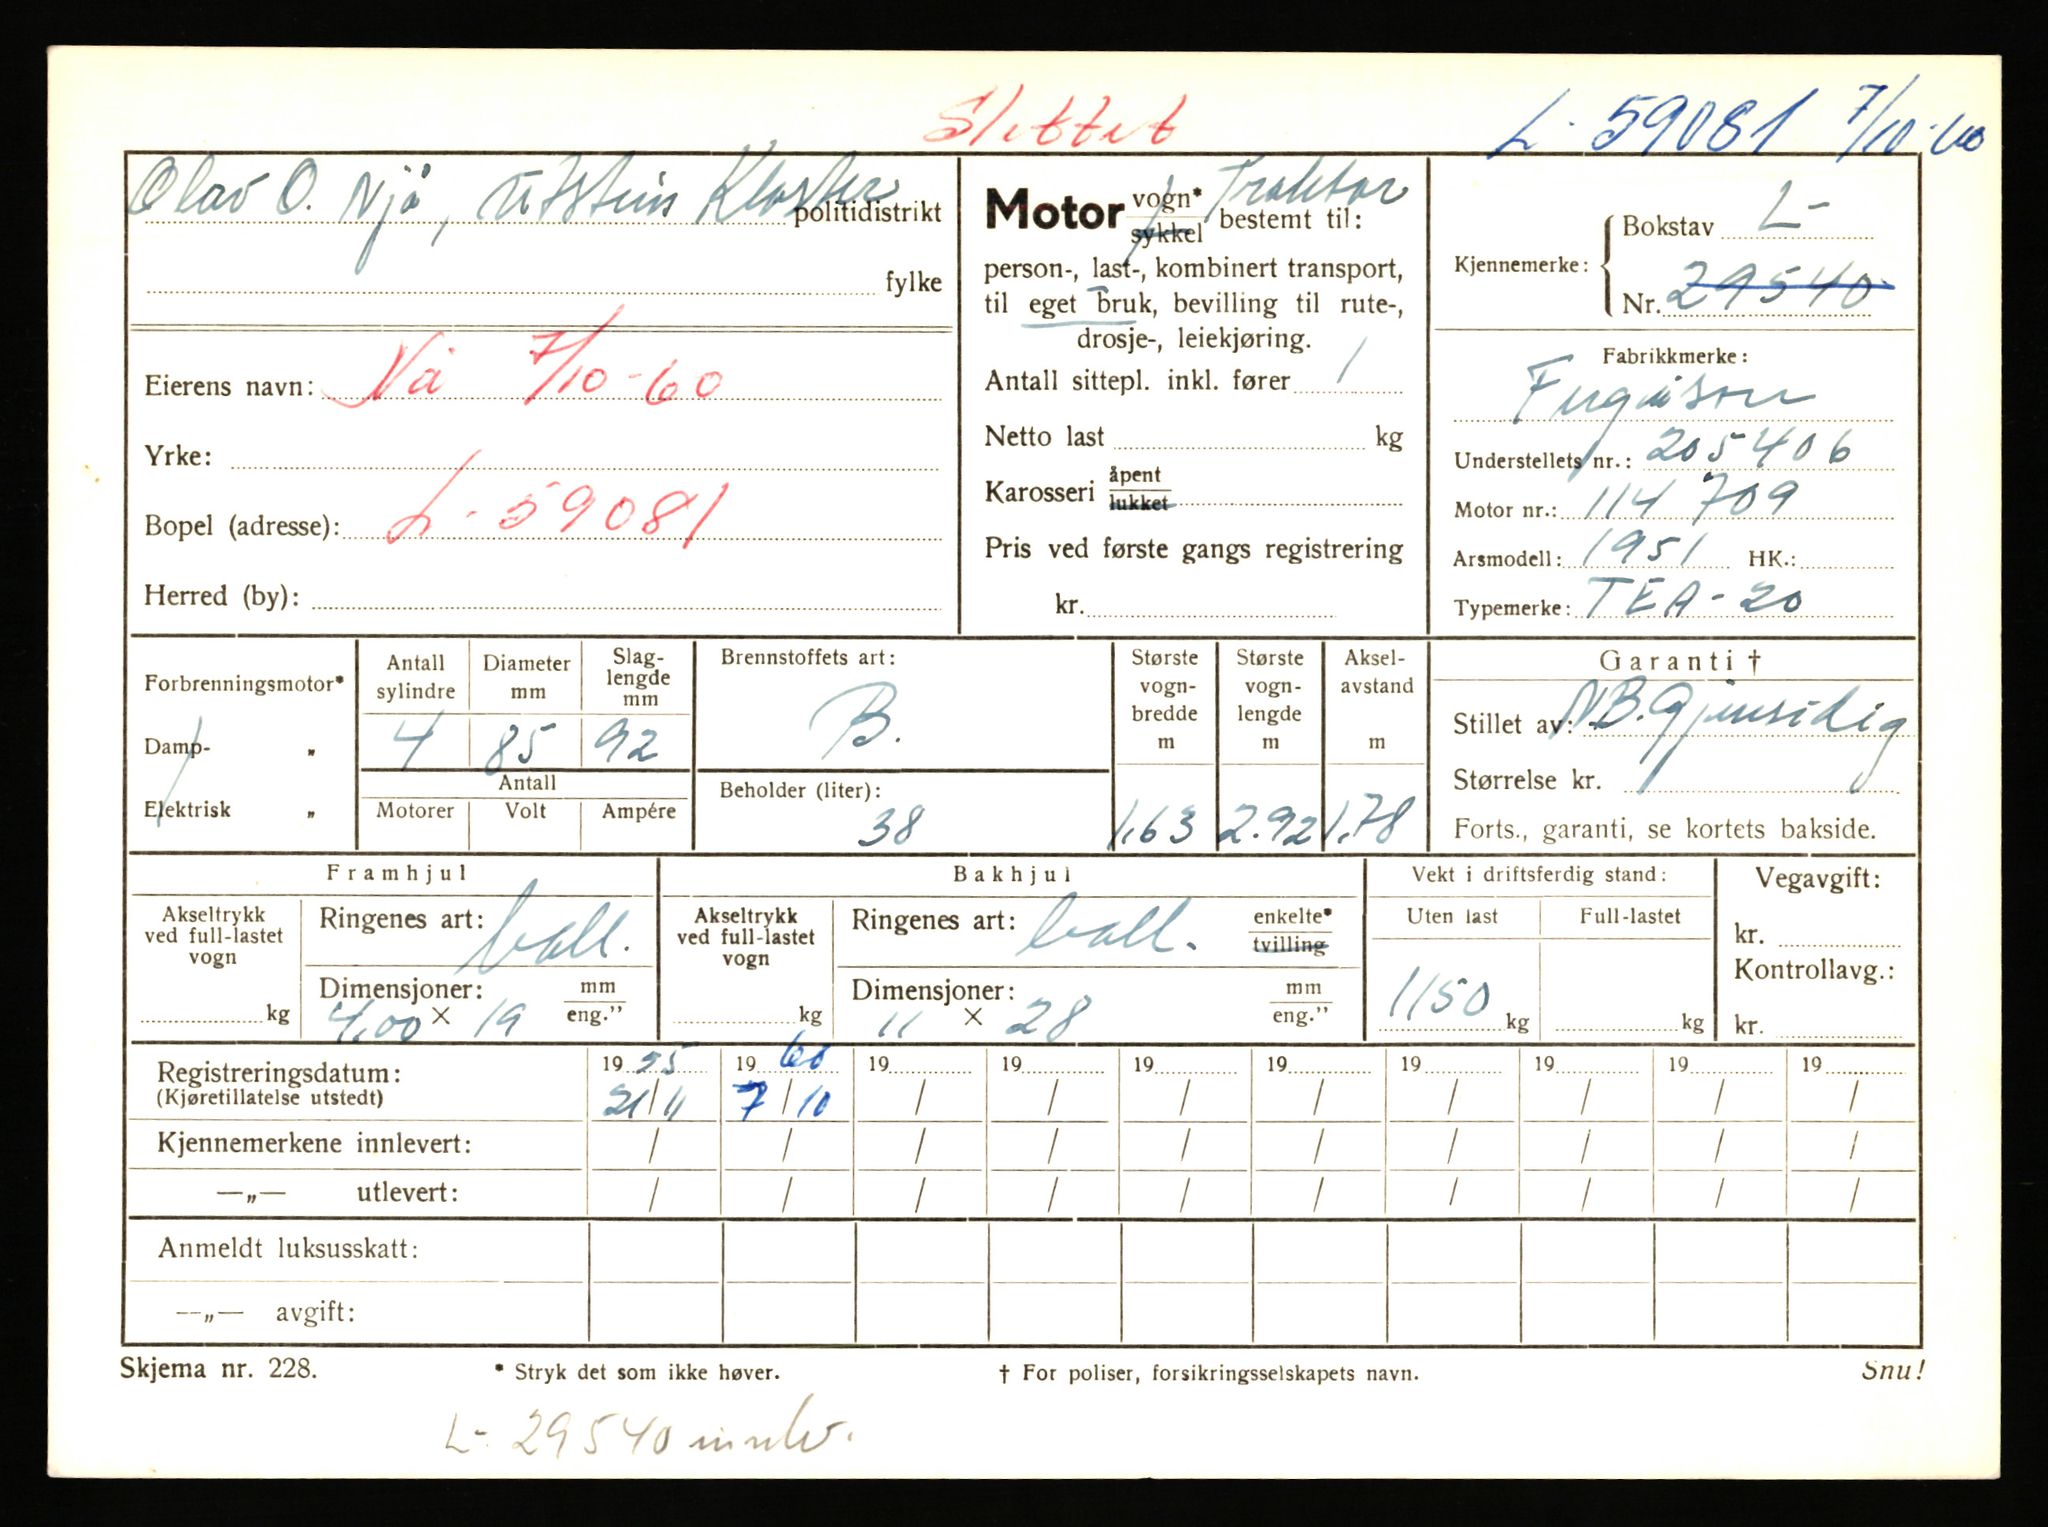 Slettet
L- 59081 7/10-60
Olav O. Njå, Utstein Kloster politidistrikt
fylke
Eierens navn: Nå 7/10-60
Yrke:
Bopel (adresse): L- 59081
Herred (by):
Motor vogn* / sykkel bestemt til: Traktor
person-, last-, kombinert transport,
til eget bruk, bevilling til rute-,
drosje-, leiekjøring.
Antall sittepl. inkl. fører 1
Netto last kg
Karosseri åpent / lukket
Pris ved første gangs registrering
kr.
Kjennemerke: Bokstav L-
Nr. 29540
Fabrikkmerke:
Ferguson
Understellets nr.: 205406
Motor nr.: 114 709
Årsmodell: 1951 HK.:
Typemerke: TEA-20
Forbrenningsmotor*
Damp- "
Elektrisk "
Antall sylindre 4
Diameter mm 85
Slag-lengde mm 92
Antall
Motorer Volt Ampére
Brennstoffets art:
B.
Beholder (liter):
38
Største vogn-bredde m 1,63
Største vogn-lengde m 2.92
Aksel-avstand m 1,78
Garanti †
Stillet av: N.B. Gjensidig
Størrelse kr.
Forts., garanti, se kortets bakside.
Framhjul
Akseltrykk ved full-lastet vogn kg
Ringenes art: ball.
Dimensjoner: 4,00 × 19 mm / eng."
Bakhjul
Akseltrykk ved full-lastet vogn kg
Ringenes art: ball. enkelte* / tvilling
Dimensjoner: 11 × 28 mm / eng."
Vekt i driftsferdig stand:
Uten last Full-lastet
1150 kg kg
Vegavgift:
kr.
Kontrollavg.:
kr.
Registreringsdatum: 19 55 19 60 19 19 19 19 19 19 19 19
(Kjøretillatelse utstedt) 21/11 7/10 / / / / / / / /
Kjennemerkene innlevert: / / / / / / / / / /
—„— utlevert: / / / / / / / / / /
Anmeldt luksusskatt:
—„— avgift:
Skjema nr. 228. * Stryk det som ikke høver. † For poliser, forsikringsselskapets navn. Snu!
L- 29540 innlev.